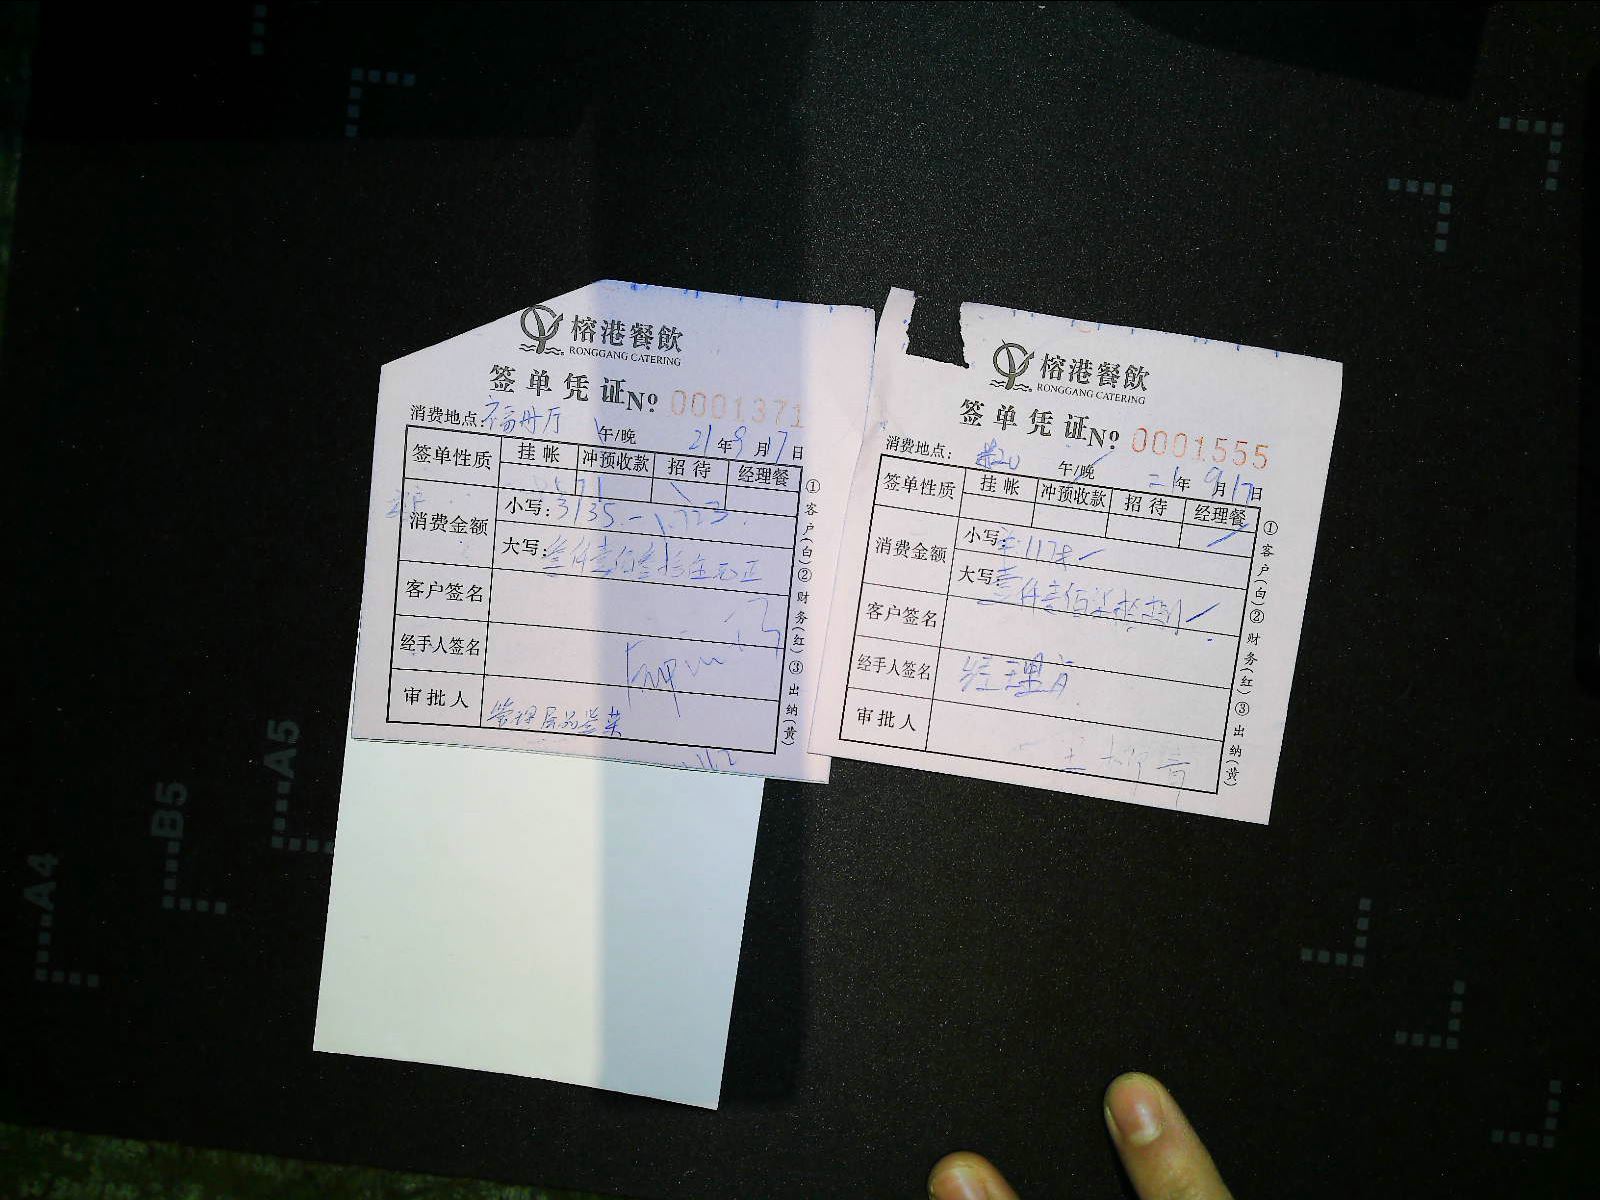 榕港餐飲
RONGGANG CATERING
签单凭证 No 0001371
消费地点: 福丹厅 午/晚 21年9月17日
签单性质 挂帐 冲预收款 招待 经理餐
消费金额 小写: 3135.-
大写: 叁仟壹佰叁拾伍元正
客户签名
经手人签名
审批人 管理层品尝菜
①客户(白)②财务(红)③出纳(黄)
榕港餐飲
RONGGANG CATERING
签单凭证 No 0001555
消费地点: 午/晚 21年9月17日
签单性质 挂帐 冲预收款 招待 经理餐
消费金额 小写: 1178
大写: 壹仟壹佰柒拾捌
客户签名
经手人签名 经理
审批人
①客户(白)②财务(红)③出纳(黄)
A5
B5
A4